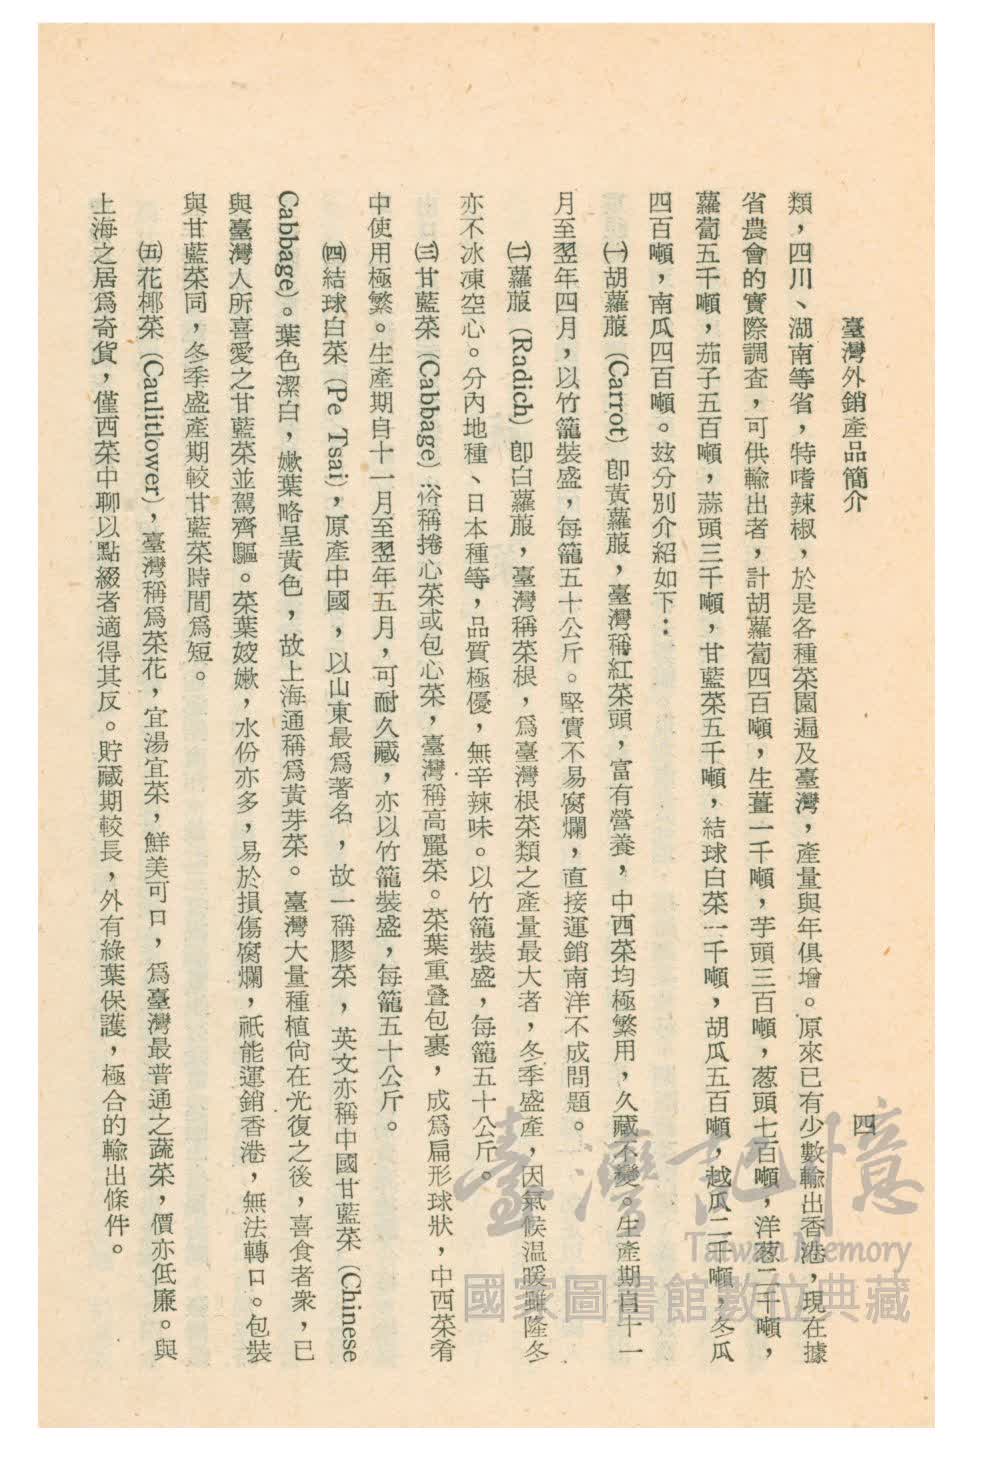 臺灣外銷產品簡介
四
類，四川、湖南等省，特嗜辣椒，於是各種菜園遍及臺灣，產量與年俱增。原來已有少數輸出香港，現在據
省農會的實際調査，可供輸出者，計胡蘿蔔四百噸，生薑一千噸，芋頭三百噸，葱頭七百噸，洋葱二千噸，
蘿蔔五千噸，茄子五百噸，蒜頭三千噸，甘藍菜五千噸，結球白菜一千噸，胡瓜五百噸，越瓜二千噸，冬瓜
四百噸，南瓜四百噸。玆分別介紹如下：
㈠胡蘿菔（Carrot）卽黃蘿菔，臺灣稱紅菜頭，富有營養，中西菜均極繁用，久藏不變。生產期自十一
月至翌年四月，以竹籠裝盛，每籠五十公斤。堅實不易腐爛，直接運銷南洋不成問題。
㈡蘿菔（Radich）卽白蘿菔，臺灣稱菜根，爲臺灣根菜類之產量最大者，冬季盛產，因氣候温暖雖隆冬
亦不冰凍空心。分內地種、日本種等，品質極優，無辛辣味。以竹籠裝盛，每籠五十公斤。
㈢甘藍菜（Cabbage）：俗稱捲心菜或包心菜，臺灣稱高麗菜。菜葉重叠包裹，成爲扁形球狀，中西菜肴
中使用極繁。生產期自十一月至翌年五月，可耐久藏，亦以竹籠裝盛，每籠五十公斤。
㈣結球白菜（Pe Tsai），原產中國，以山東最爲著名，故一稱膠菜，英文亦稱中國甘藍菜（Chinese
Cabbage）。葉色潔白，嫩葉略呈黃色，故上海通稱爲黃芽菜。臺灣大量種植尙在光復之後，喜食者衆，已
與臺灣人所喜愛之甘藍菜並駕齊驅。菜葉姣嫩，水份亦多，易於損傷腐爛，祇能運銷香港，無法轉口。包裝
與甘藍菜同，冬季盛產期較甘藍菜時間爲短。
㈤花椰菜（Caulitlower），臺灣稱爲菜花，宜湯宜菜，鮮美可口，爲臺灣最普通之蔬菜，價亦低廉。與
上海之居爲奇貨，僅西菜中聊以點綴者適得其反。貯藏期較長，外有綠葉保護，極合的輸出條件。
臺灣記憶
Taiwan Memory
國家圖書館數位典藏